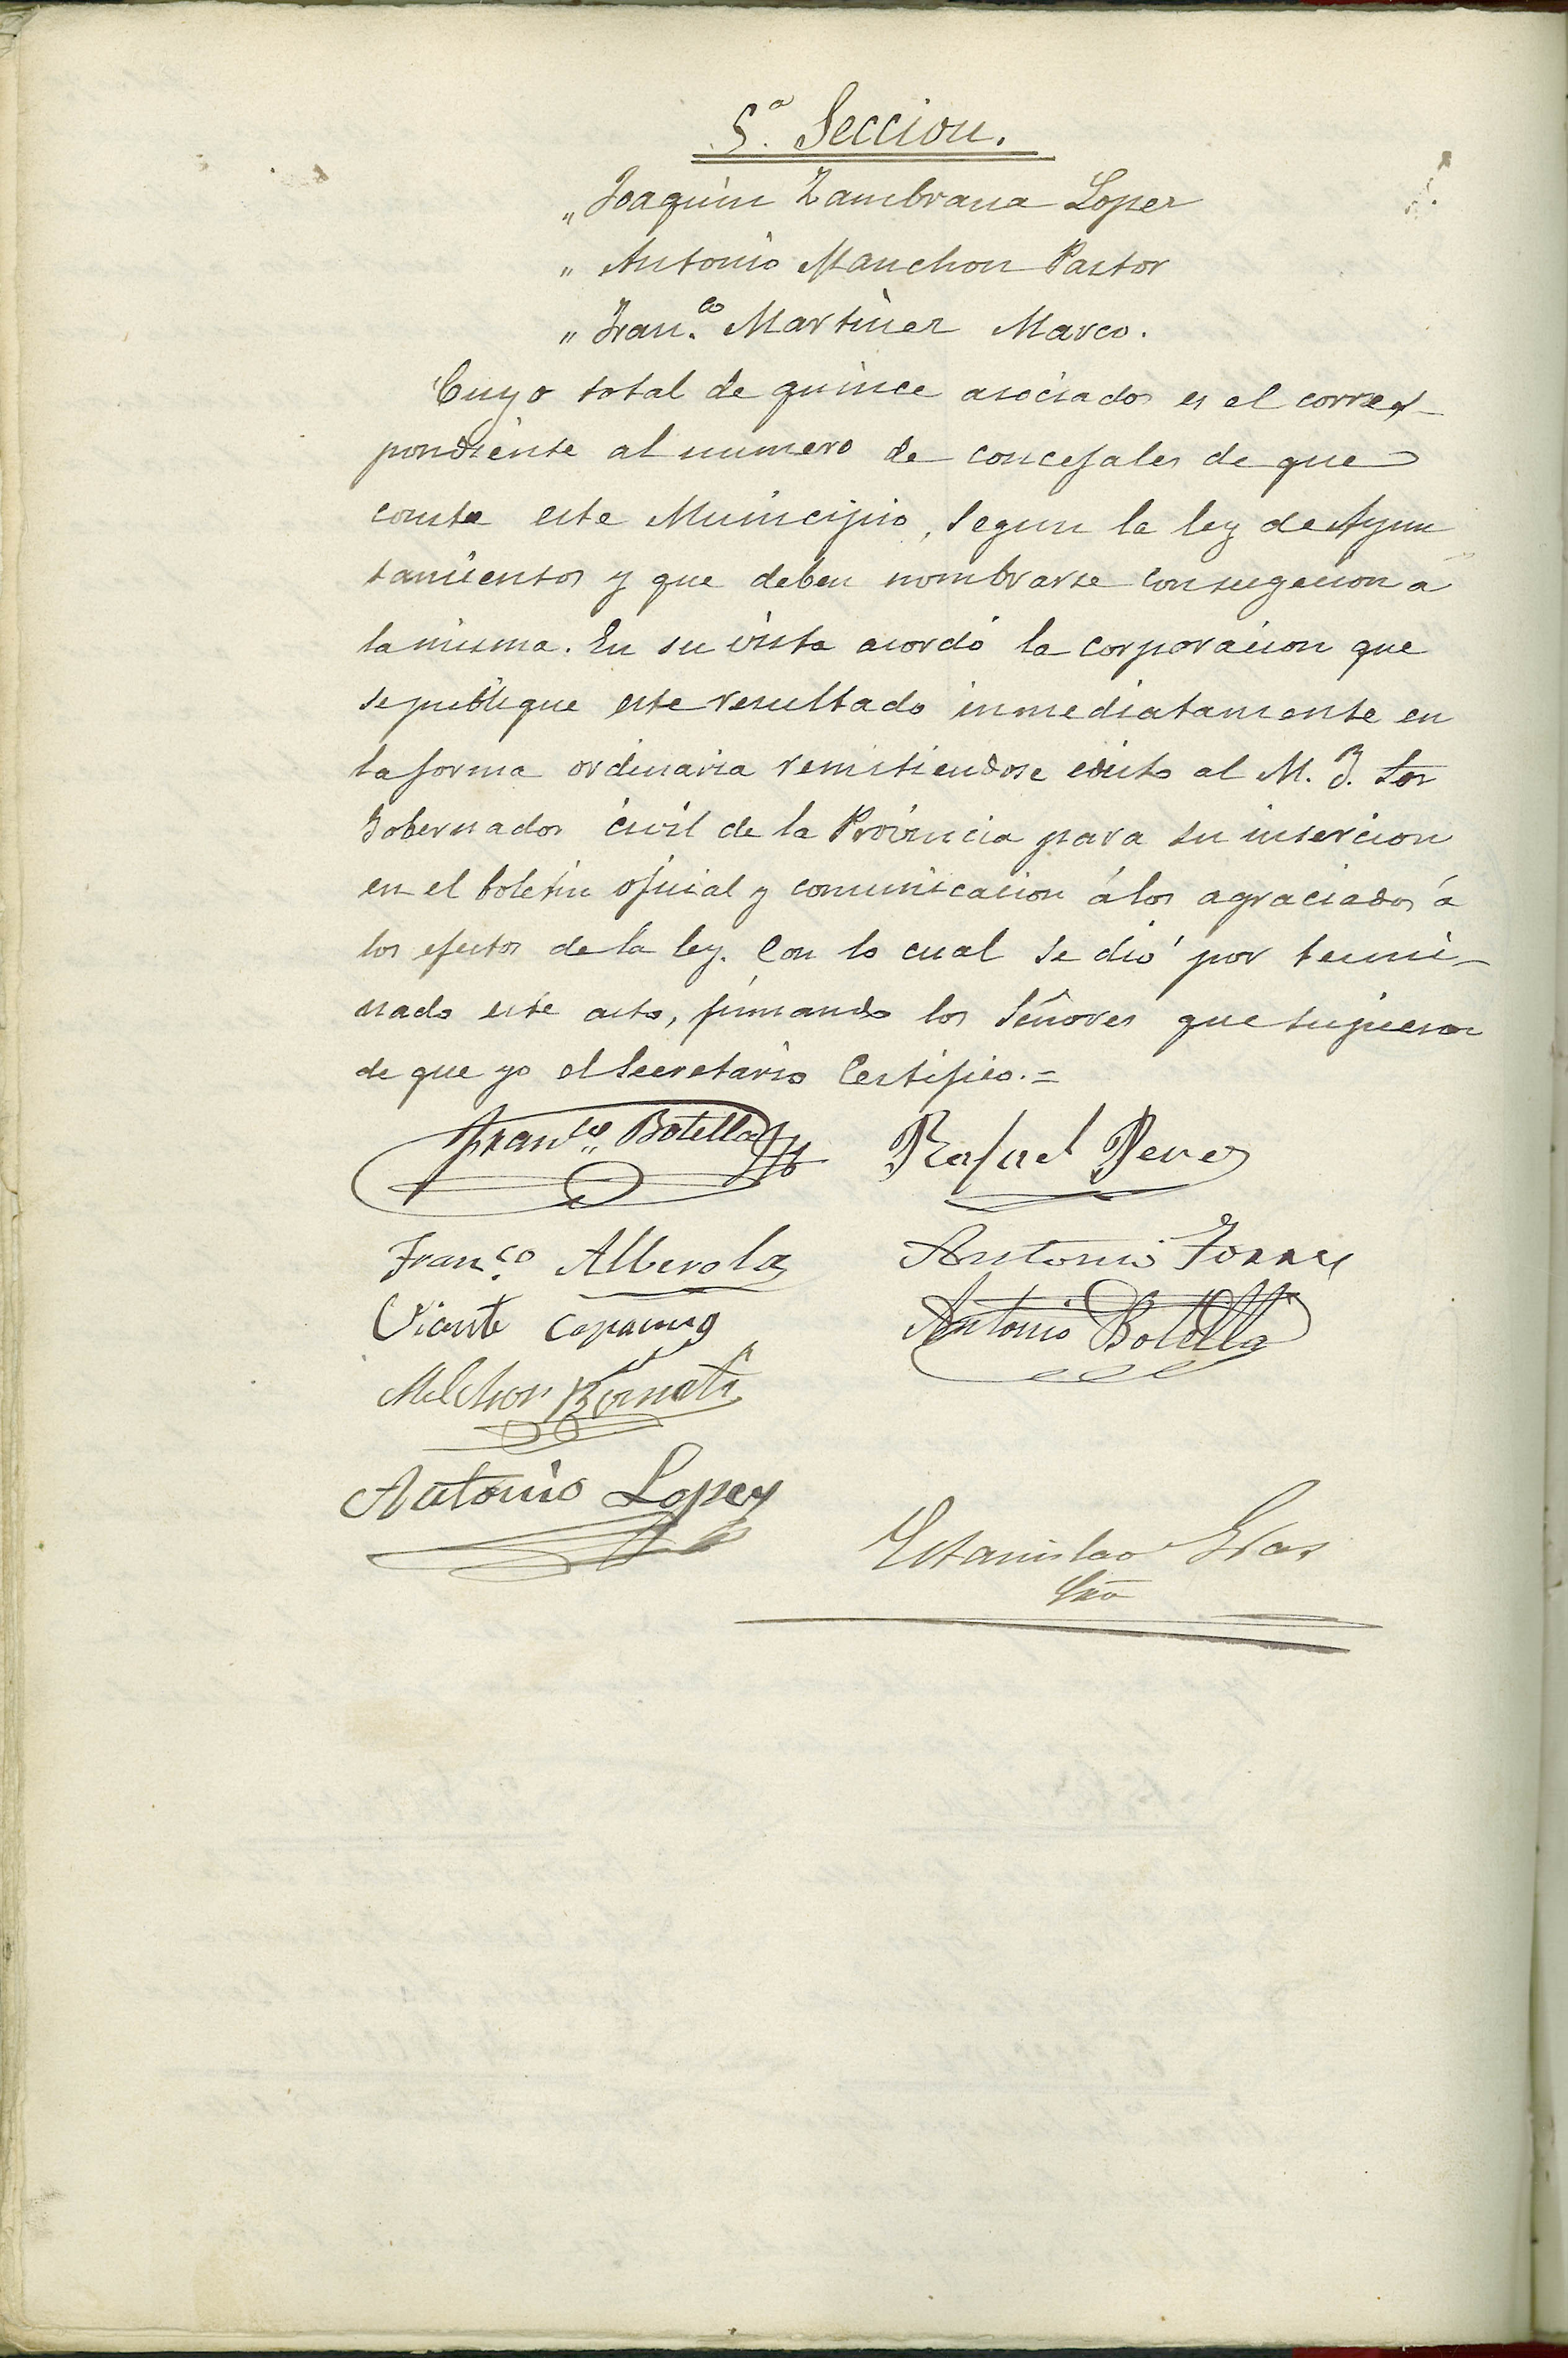 5.ª Seccion.
„ Joaquin Zambrana Lopez
„ Antonio Manchon Pastor
„ Fran.co Martinez Marco.
Cuyo total de quince asociados es el corres-
pondiente al numero de concejales de que
consta este Municipio, segun la ley de Ayun
tamientos y que deben nombrarse con sugecion á
la misma. En su vista acordó la corporacion que
se publique este resultado inmediatamente en
la forma ordinaria remitiendose edicto al M. Y. Sor
Gobernador civil de la Provincia para su insercion
en el boletin oficial y comunicacion á los agraciados á
los efectos de la ley. Con lo cual se dió por termi-
nado este acto, firmando los Señores que supieron
de que yo el Secretario Certifico.=
Fran.co Botella Rafael Perez
Fran.co Alberola Antonio Torres
Vicente Antonio Botella
Melchor
Antonio Lopez
Estanislao Gras
Srio